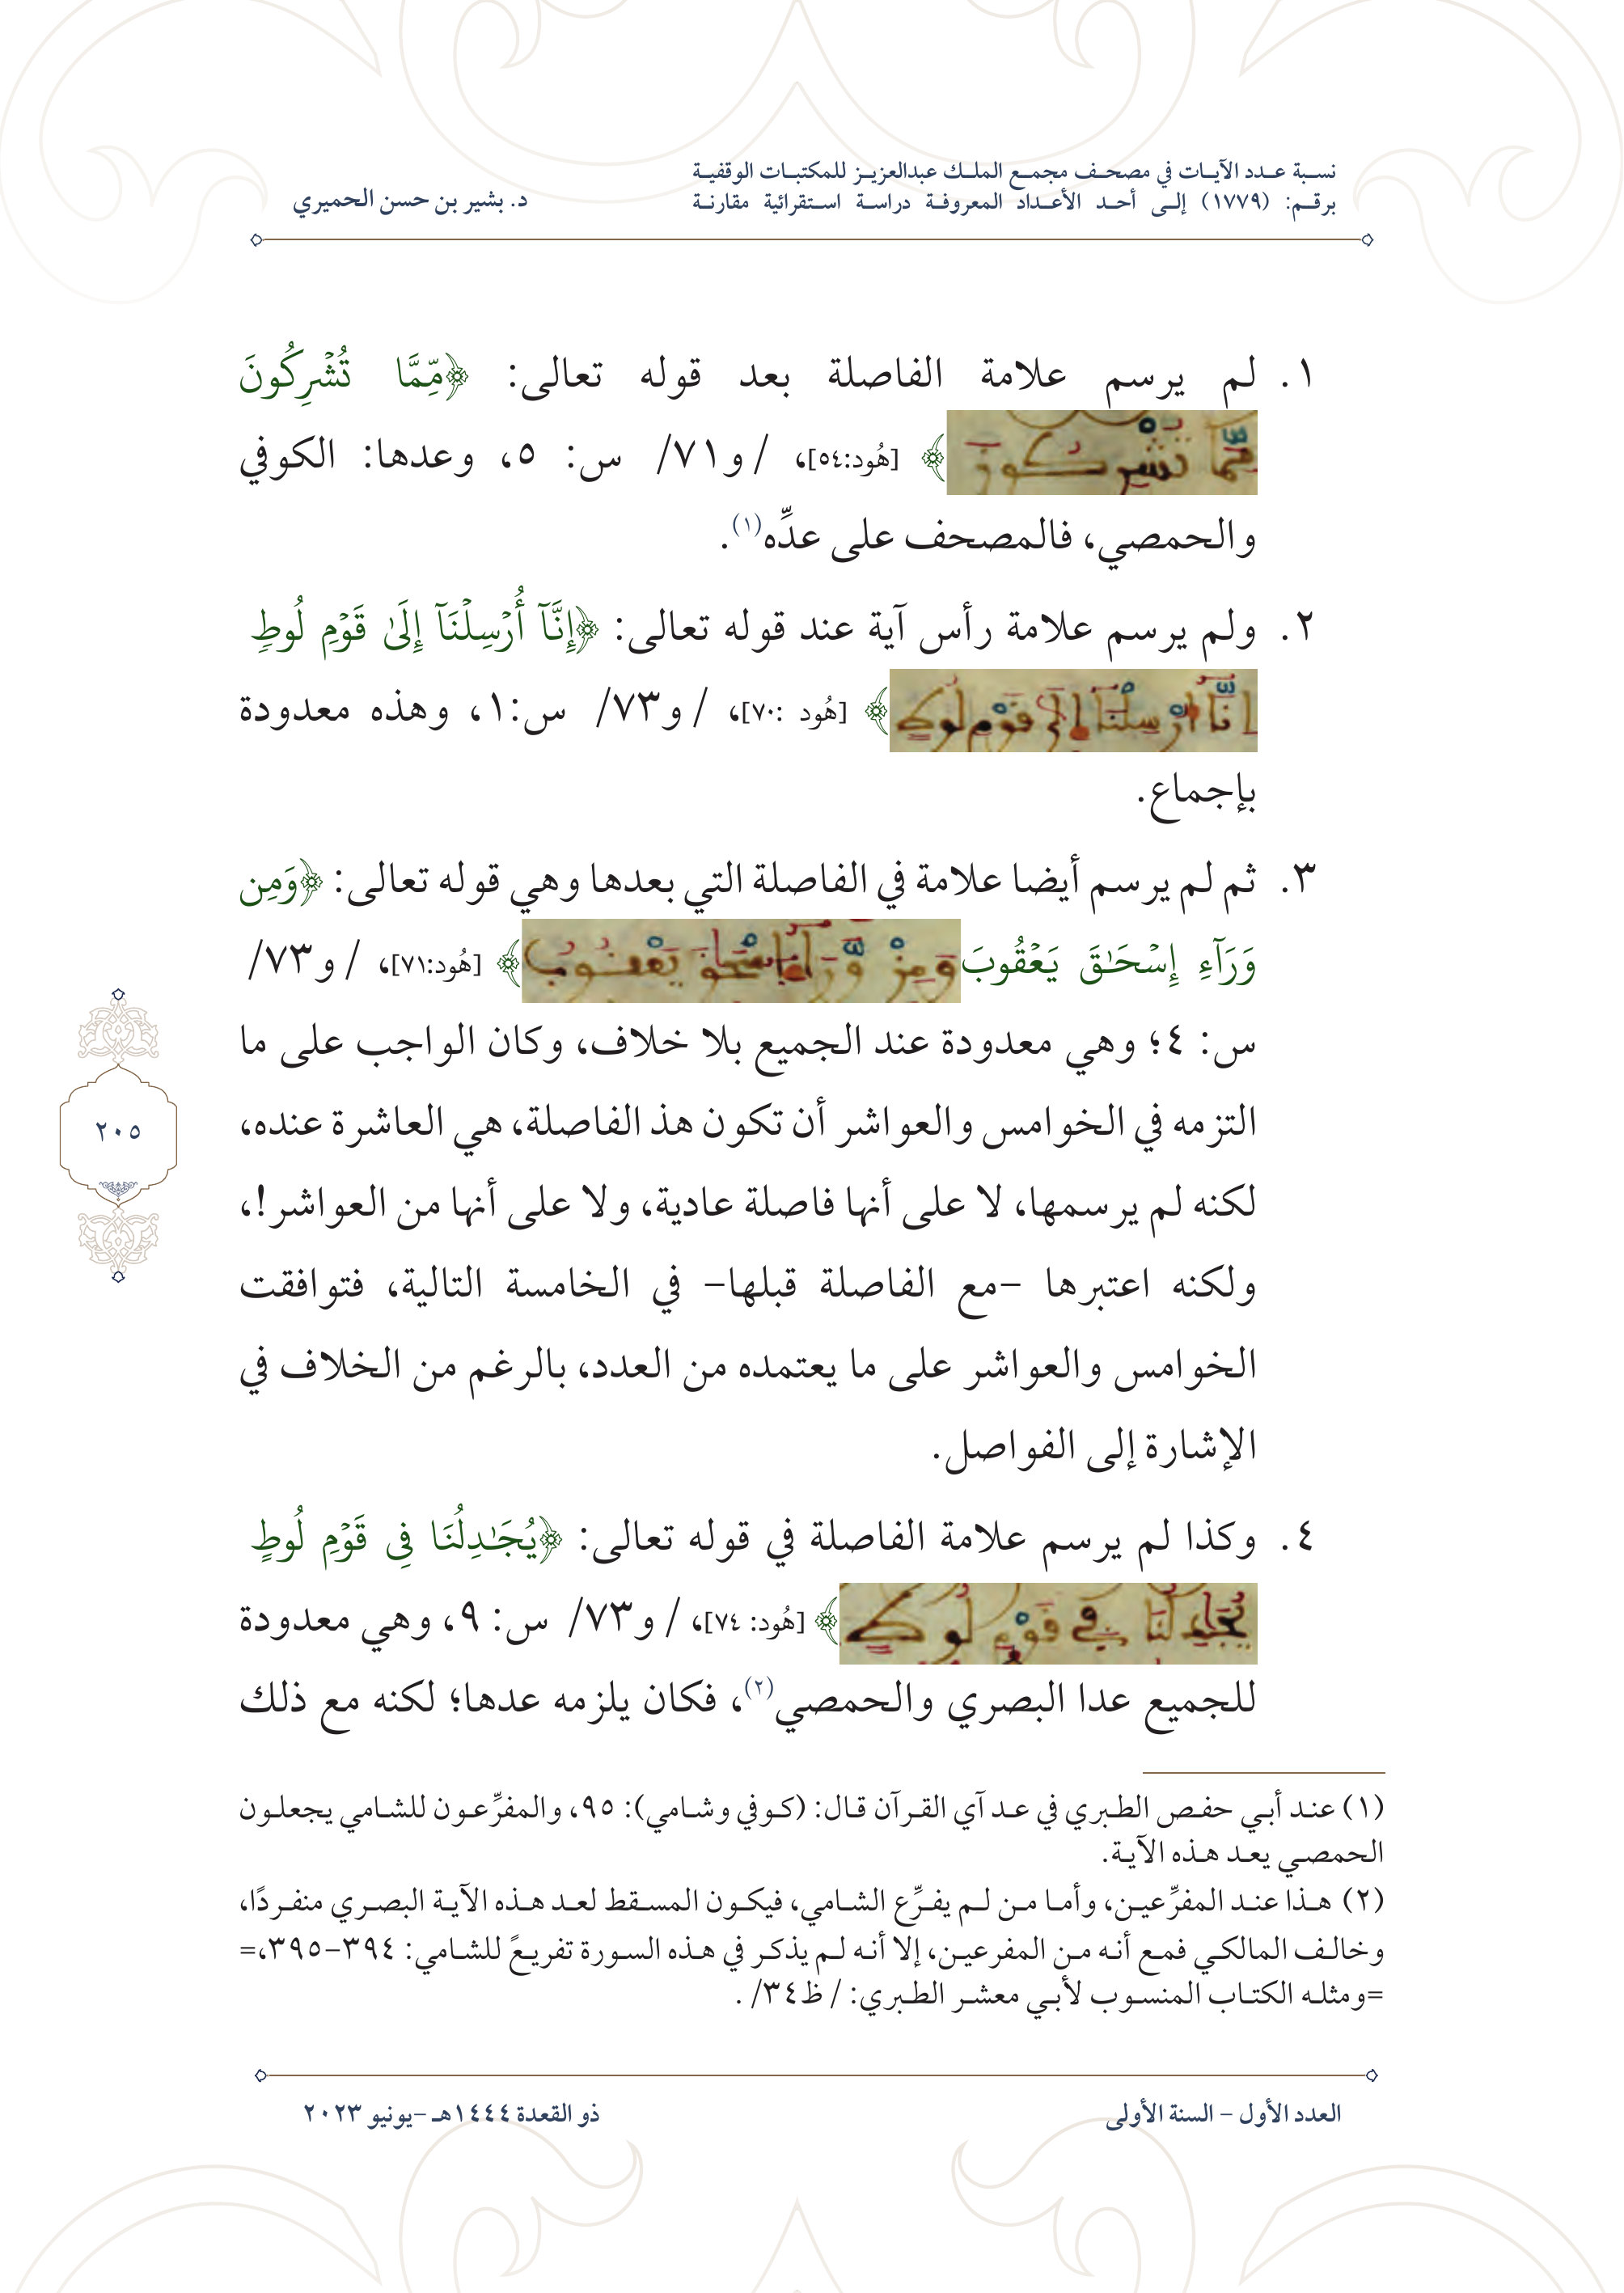 نسبة عدد الآيات في مصحف مجمع الملك عبدالعزيز للمكتبات الوقفية
برقم: (١٧٧٩) إلى أحد الأعداد المعروفة دراسة استقرائية مقارنة
د. بشير بن حسن الحميري
١. لم يرسم علامة الفاصلة بعد قوله تعالى: ﴿مِّمَّا تُشْرِكُونَ
مما تشركون﴾ [هُود:٥٤]، /و٧١/ س: ٥، وعدها: الكوفي
والحمصي، فالمصحف على عدِّه(١).
٢. ولم يرسم علامة رأس آية عند قوله تعالى: ﴿إِنَّآ أُرْسِلْنَآ إِلَىٰ قَوْمِ لُوطٍ
انا ارسلنا الى قوم لوط﴾ [هُود :٧٠]، /و٧٣/ س:١، وهذه معدودة
بإجماع.
٣. ثم لم يرسم أيضا علامة في الفاصلة التي بعدها وهي قوله تعالى: ﴿وَمِن
وَرَآءِ إِسْحَـٰقَ يَعْقُوبَ ومن ورا اسحق يعقوب﴾ [هُود:٧١]، /و٧٣/
س: ٤؛ وهي معدودة عند الجميع بلا خلاف، وكان الواجب على ما
التزمه في الخوامس والعواشر أن تكون هذ الفاصلة، هي العاشرة عنده،
لكنه لم يرسمها، لا على أنها فاصلة عادية، ولا على أنها من العواشر!،
ولكنه اعتبرها –مع الفاصلة قبلها– في الخامسة التالية، فتوافقت
الخوامس والعواشر على ما يعتمده من العدد، بالرغم من الخلاف في
الإشارة إلى الفواصل.
٤. وكذا لم يرسم علامة الفاصلة في قوله تعالى: ﴿يُجَـٰدِلُنَا فِى قَوْمِ لُوطٍ
يجدلنا في قوم لوط﴾ [هُود: ٧٤]، /و٧٣/ س: ٩، وهي معدودة
للجميع عدا البصري والحمصي(٢)، فكان يلزمه عدها؛ لكنه مع ذلك
٢٠٥
(١) عند أبي حفص الطبري في عد آي القرآن قال: (كوفي وشامي): ٩٥، والمفرِّعون للشامي يجعلون
الحمصي يعد هذه الآية.
(٢) هذا عند المفرِّعين، وأما من لم يفرِّع الشامي، فيكون المسقط لعد هذه الآية البصري منفردًا،
وخالف المالكي فمع أنه من المفرعين، إلا أنه لم يذكر في هذه السورة تفريعً للشامي: ٣٩٤–٣٩٥،=
=ومثله الكتاب المنسوب لأبي معشر الطبري: /ظ٣٤/ .
العدد الأول – السنة الأولى
ذو القعدة ١٤٤٤هـ –يونيو ٢٠٢٣